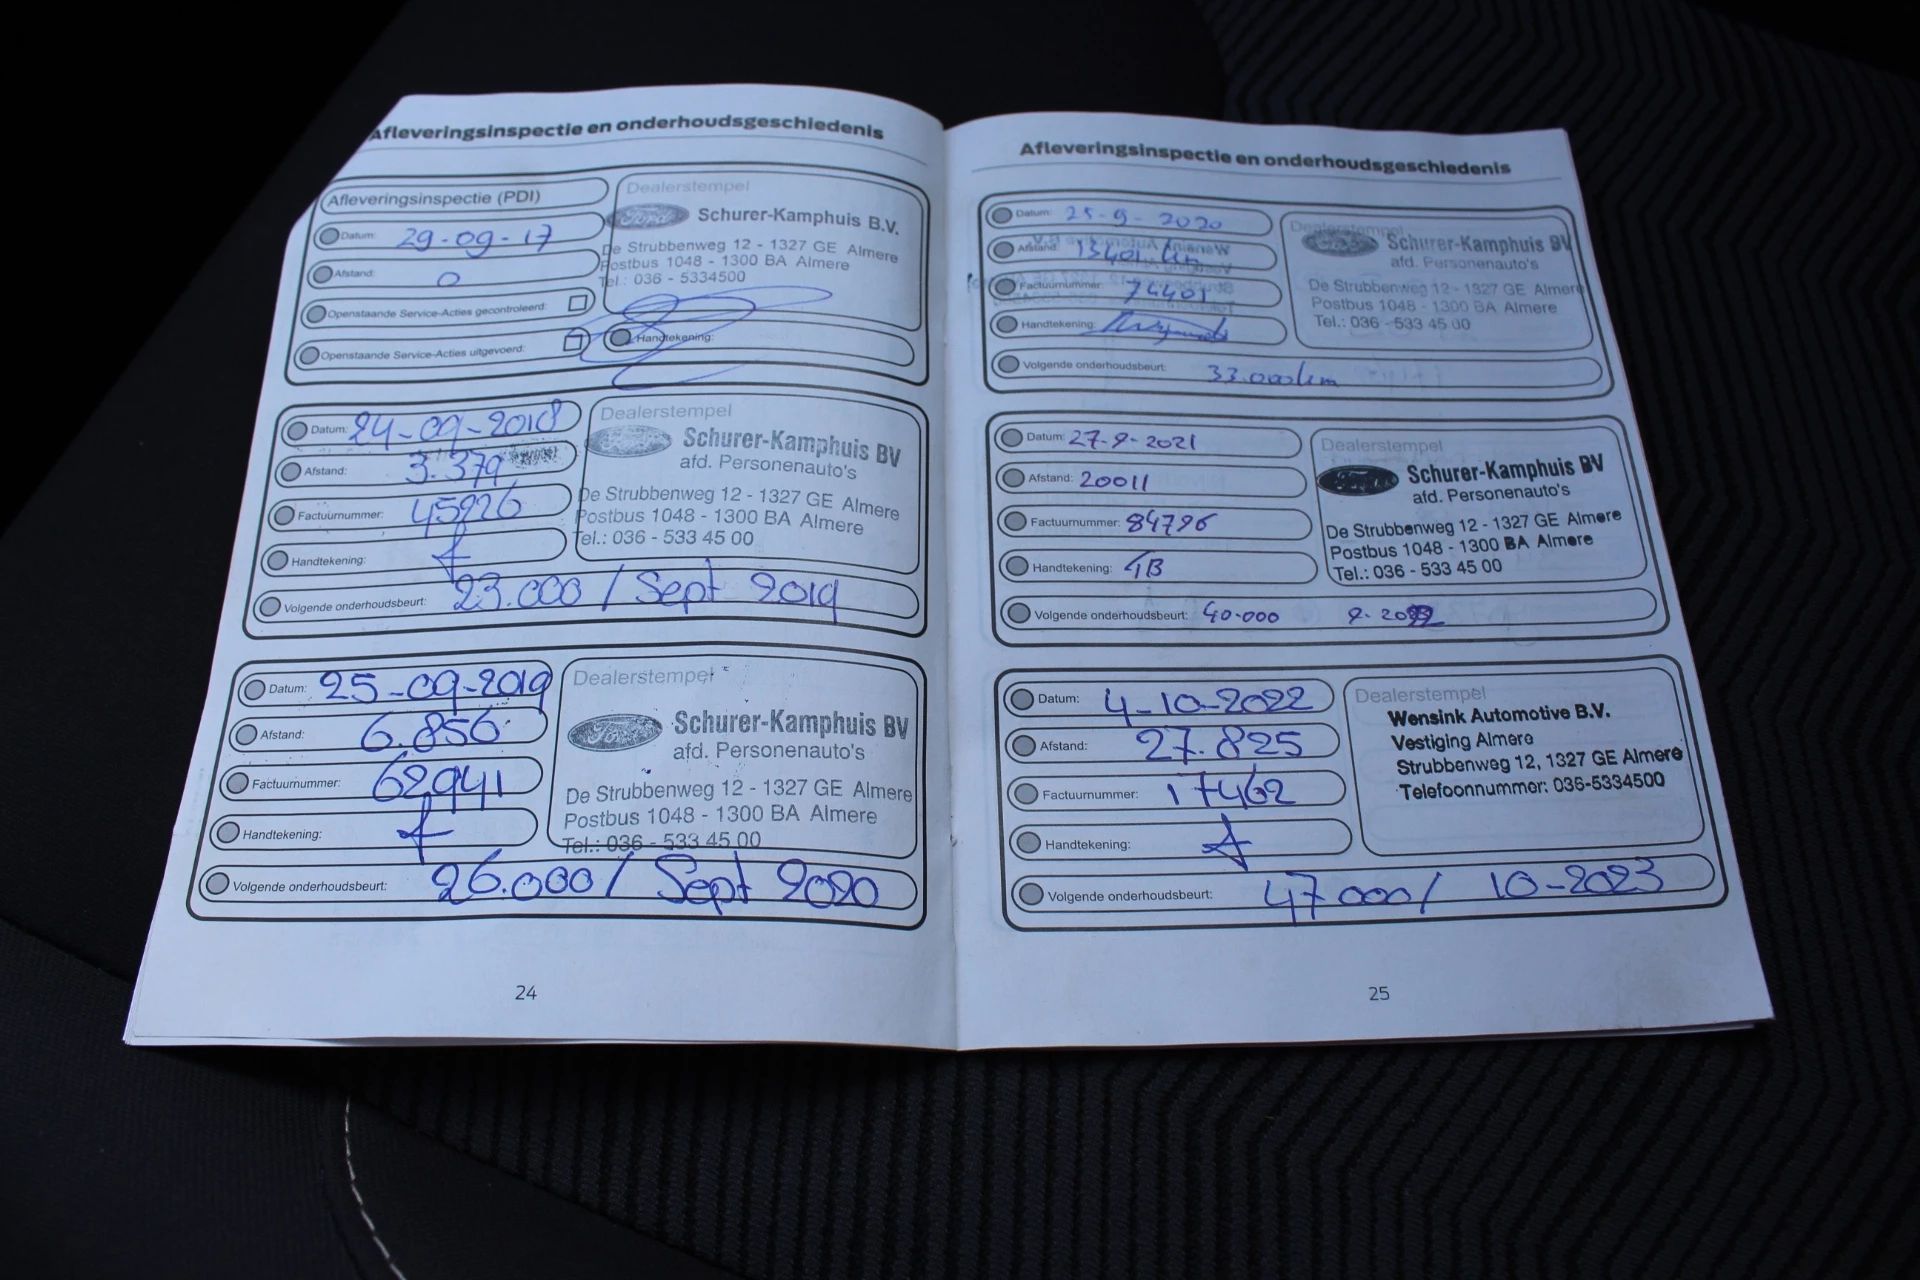 Afleveringsinspectie en onderhoudsgeschiedenis
Afleveringsinspectie (PDI)
Datum: 29-09-17
Afstand: 0
Openstaande Service-Acties gecontroleerd:
Openstaande Service-Acties uitgevoerd:
Dealerstempel
Ford
Schurer-Kamphuis B.V.
De Strubbenweg 12 - 1327 GE Almere
Postbus 1048 - 1300 BA Almere
Tel.: 036 - 5334500
Handtekening:
Datum: 24-09-2018
Afstand: 3.379
Factuurnummer: 45926
Handtekening:
Volgende onderhoudsbeurt: 23.000 / Sept 2019
Dealerstempel
Schurer-Kamphuis BV
afd. Personenauto's
De Strubbenweg 12 - 1327 GE Almere
Postbus 1048 - 1300 BA Almere
Tel.: 036 - 533 45 00
Datum: 25-09-2019
Afstand: 6.856
Factuurnummer: 62941
Handtekening:
Volgende onderhoudsbeurt: 26.000 / Sept 2020
Dealerstempel
Ford
Schurer-Kamphuis BV
afd. Personenauto's
De Strubbenweg 12 - 1327 GE Almere
Postbus 1048 - 1300 BA Almere
Tel.: 036 - 533 45 00
24
Afleveringsinspectie en onderhoudsgeschiedenis
Datum: 25-9-2020
Afstand: 13401 km
Factuurnummer: 74401
Handtekening:
Volgende onderhoudsbeurt: 33.000 km
Dealerstempel
Ford
Schurer-Kamphuis BV
afd. Personenauto's
De Strubbenweg 12 - 1327 GE Almere
Postbus 1048 - 1300 BA Almere
Tel.: 036 - 533 45 00
Datum: 27-9-2021
Afstand: 20011
Factuurnummer: 84796
Handtekening:
Volgende onderhoudsbeurt: 40.000 9-2022
Dealerstempel
Ford
Schurer-Kamphuis BV
afd. Personenauto's
De Strubbenweg 12 - 1327 GE Almere
Postbus 1048 - 1300 BA Almere
Tel.: 036 - 533 45 00
Datum: 4-10-2022
Afstand: 27.825
Factuurnummer: 17462
Handtekening:
Volgende onderhoudsbeurt: 47000 / 10-2023
Dealerstempel
Wensink Automotive B.V.
Vestiging Almere
Strubbenweg 12, 1327 GE Almere
Telefoonnummer: 036-5334500
25